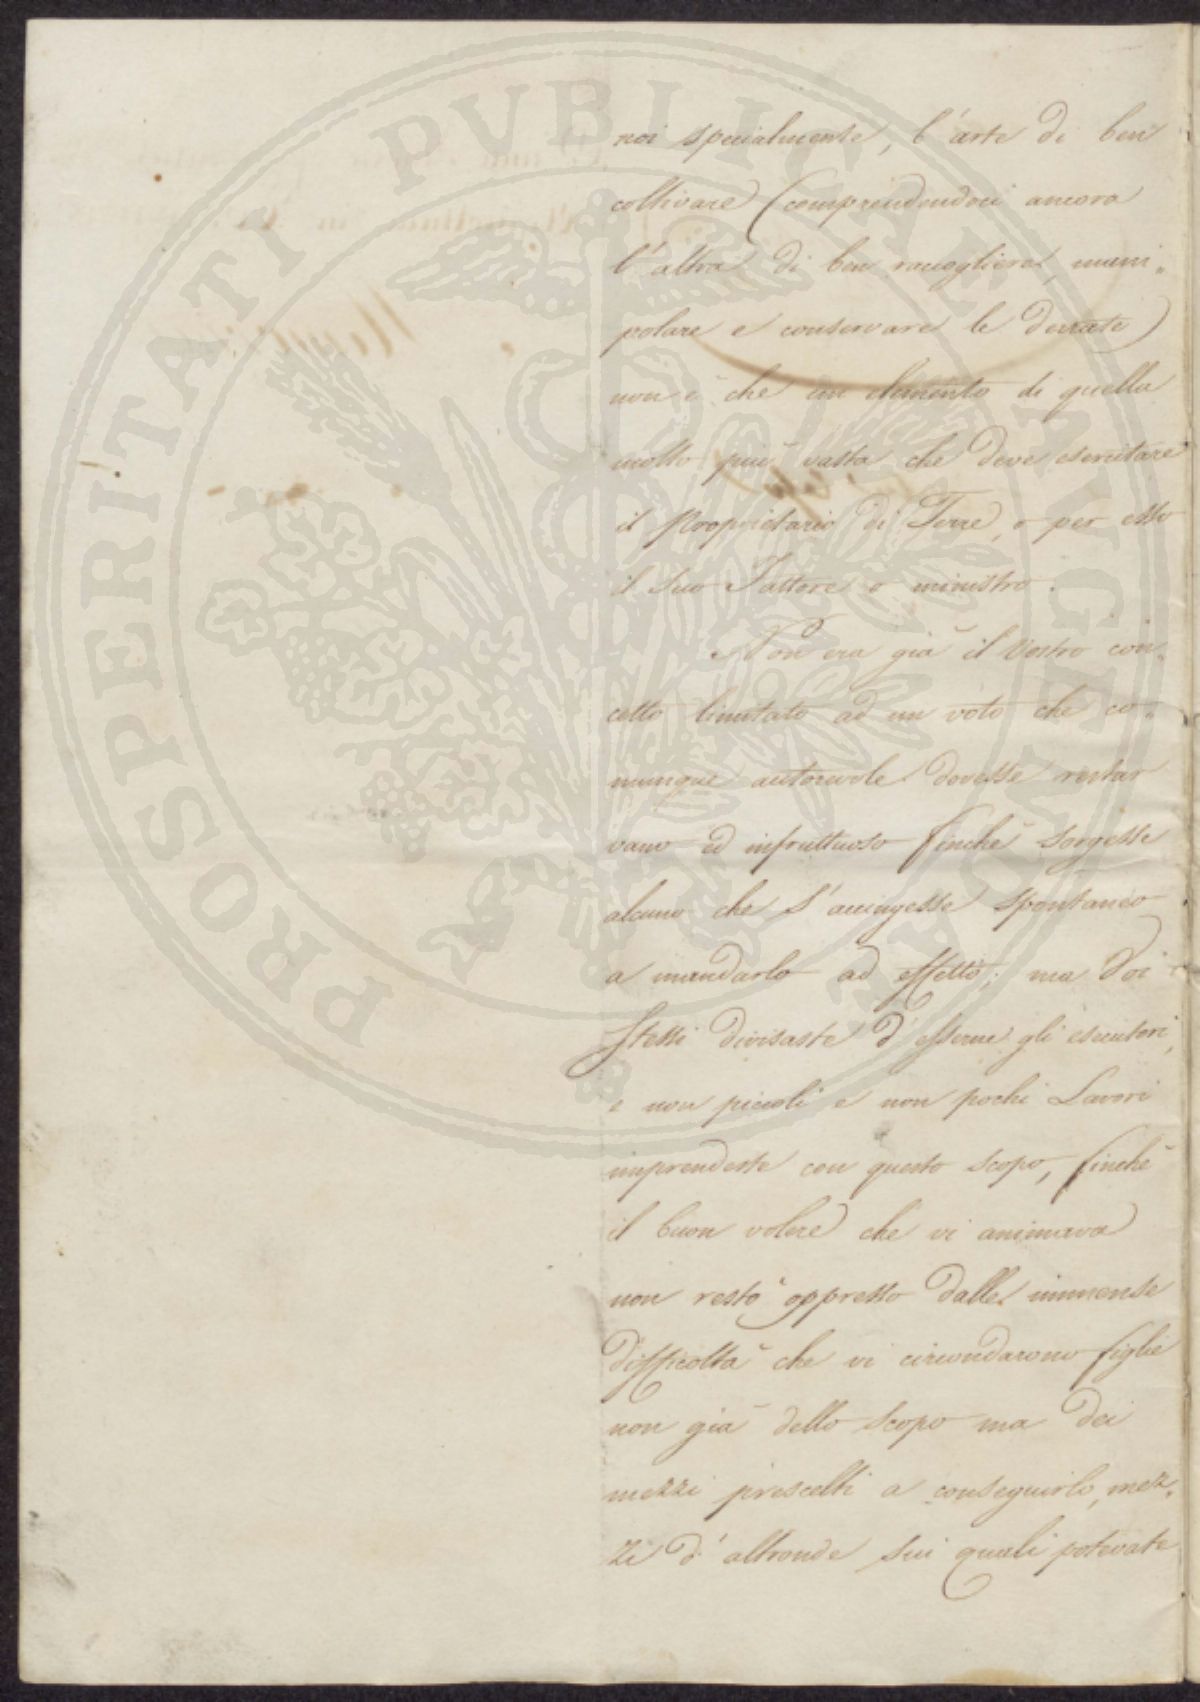 noi specialmente, l'arte di ben
coltivare (comprendendoci ancora
l'altra di ben raccogliere, mani=
polare e conservare le derrate)
non è che un elemento di quella
molto più vasta che deve esercitare
il Proprietario di Terre, o per esso
il suo Fattore o ministro.
Non era già il Vostro con=
cetto limitato ad un voto che co=
munque autorevole dovesse restar
vano ed infruttuoso finchè sorgesse
alcuno che s'accingesse spontaneo
a mandarlo ad effetto; ma Voi
stessi divisaste d'esserne gli esecutori,
e non piccoli e non pochi Lavori
imprendeste con questo scopo, finchè
il buon volere che vi animava
non restò oppresso dalle immense
difficoltà che vi circondarono figlie
non già dello scopo ma dei
mezzi prescelti a conseguirlo, mez=
zi d'altronde sui quali potevate
PROSPERITATI PUBLICAE AUGENDAE